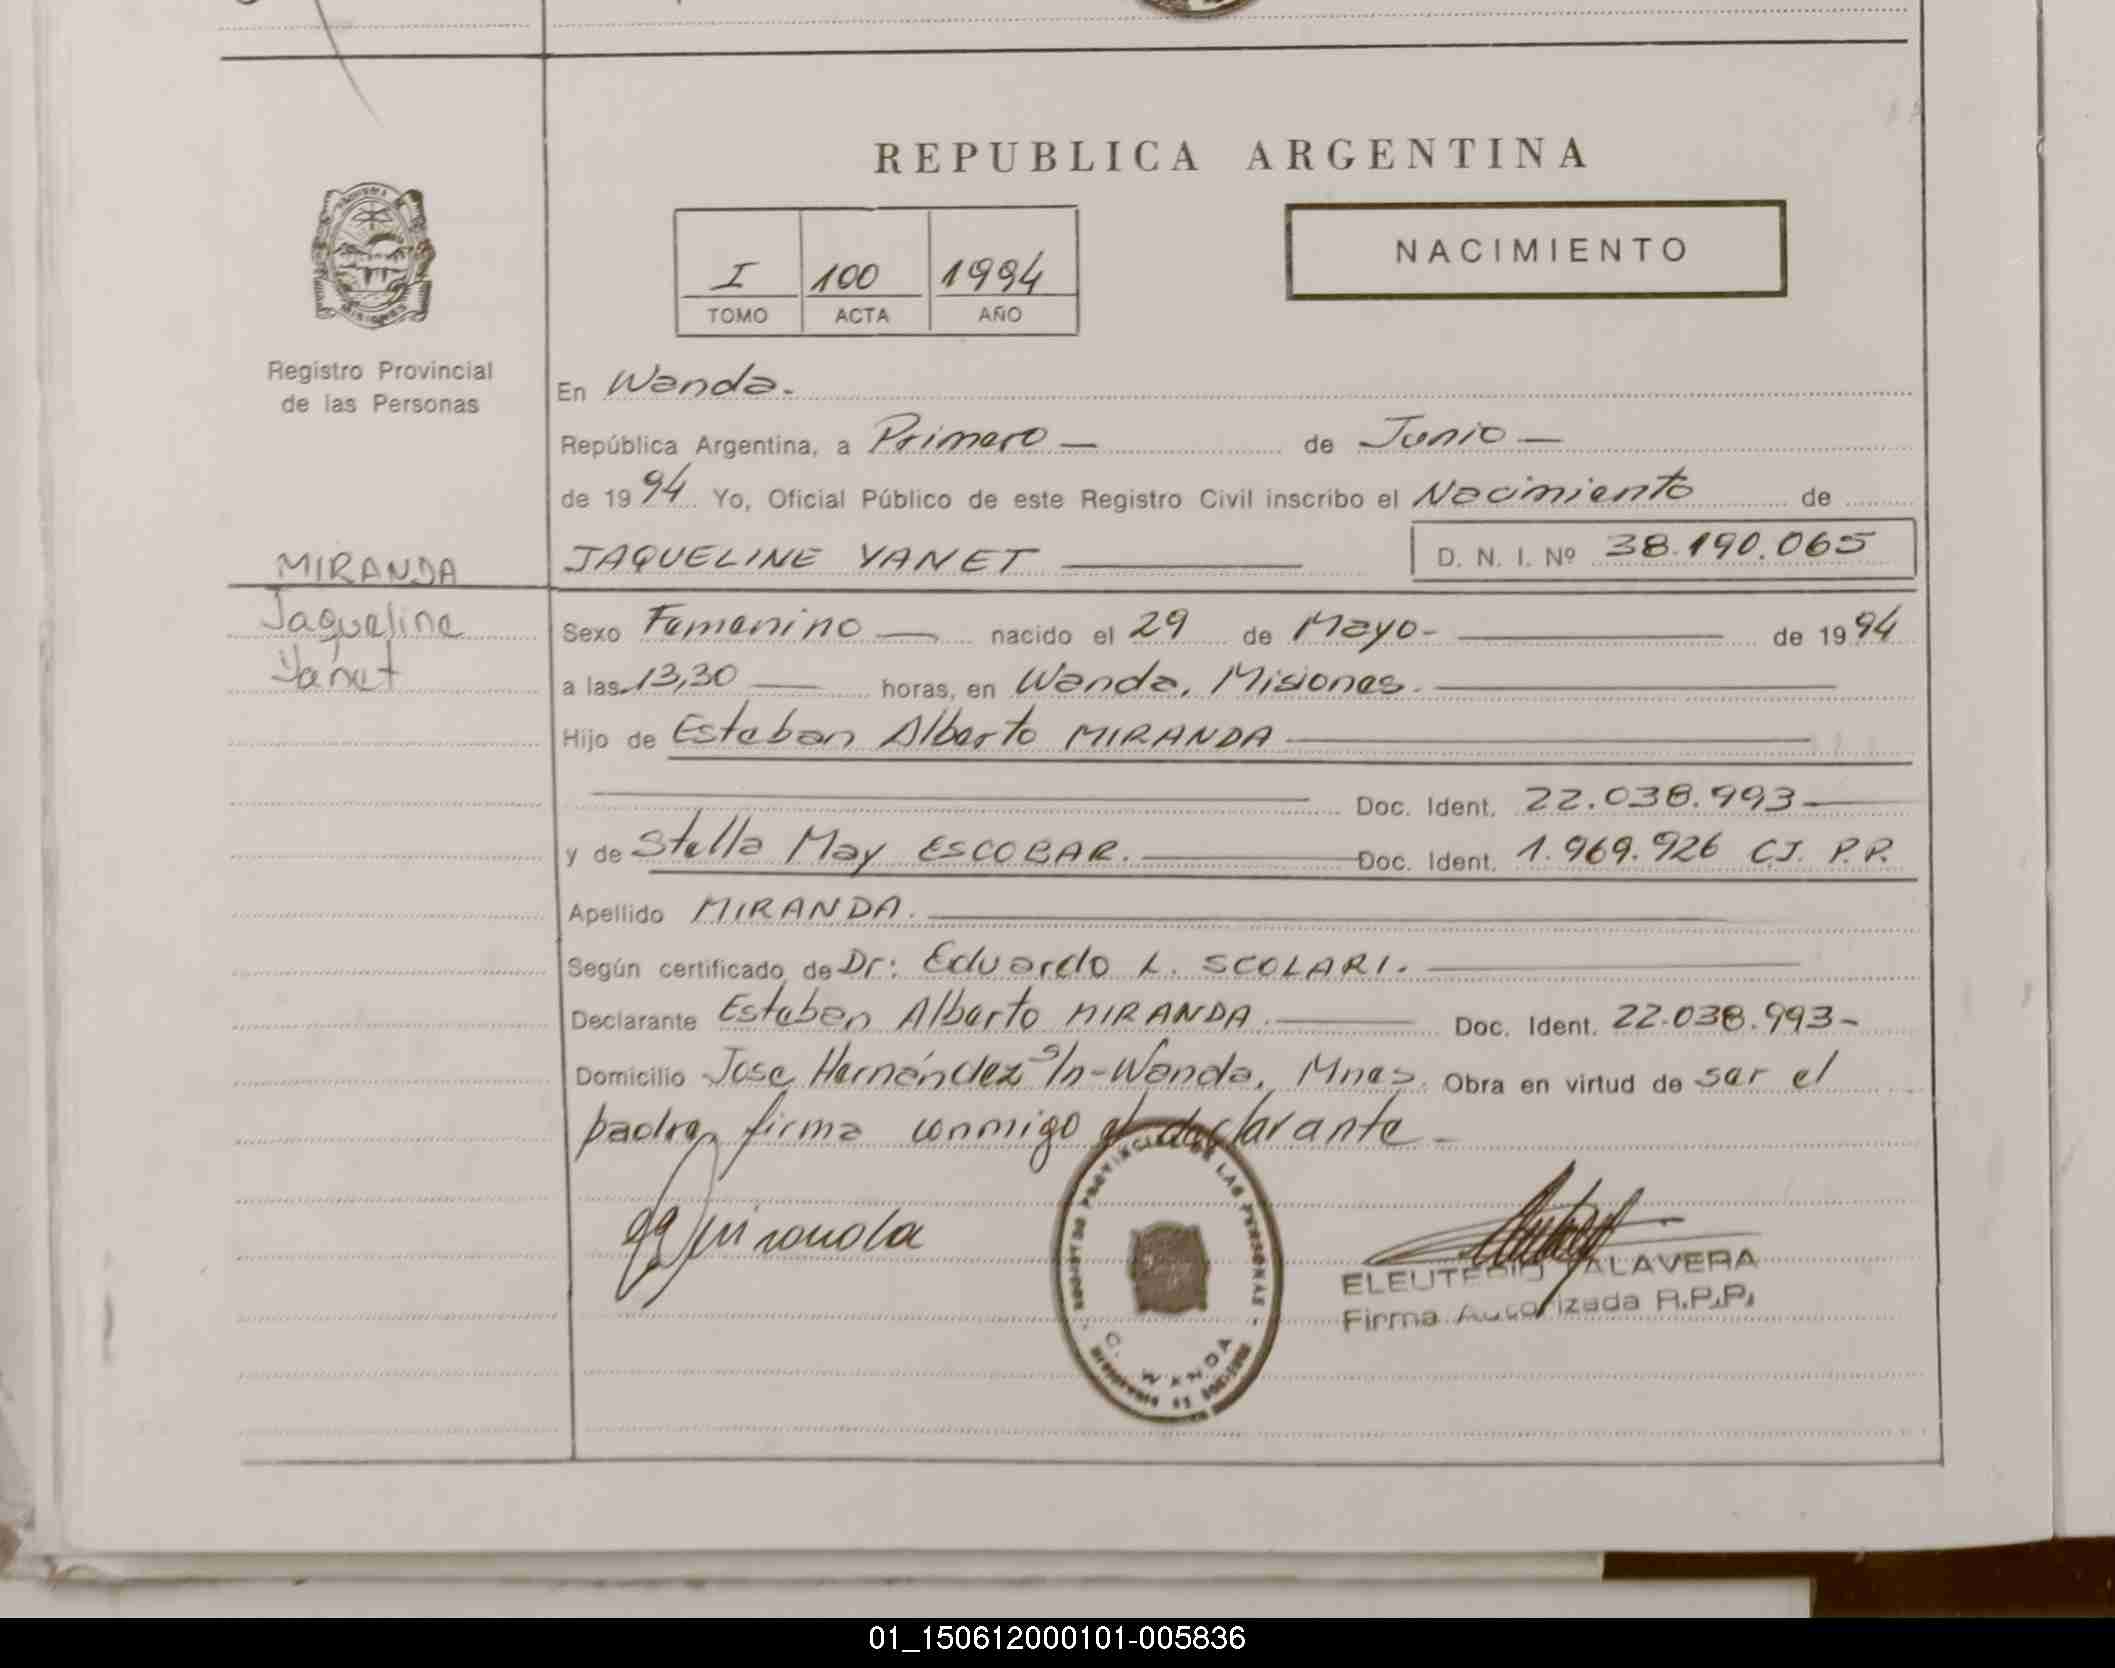 REPUBLICA ARGENTINA
NACIMIENTO
I 100 1994
TOMO ACTA AÑO
Registro Provincial
de las Personas
En Wanda.
República Argentina, a Primero — de Junio —
de 1994 Yo, Oficial Público de este Registro Civil inscribo el Nacimiento de
MIRANDA
JAQUELINE YANET D. N. I. Nº 38.190.065
Jaqueline
Yanet
Sexo Femenino — nacido el 29 de Mayo- de 1994
a las 13,30 — horas, en Wanda, Misiones.
Hijo de Esteban Alberto MIRANDA
Doc. Ident. 22.038.993
y de Stella May ESCOBAR. Doc. Ident. 1.969.926 C.I. P.P.
Apellido MIRANDA.
Según certificado de Dr: Eduardo L. SCOLARI.
Declarante Esteban Alberto MIRANDA. Doc. Ident. 22.038.993-
Domicilio Jose Hernández S/n-Wanda, Mnes. Obra en virtud de ser el
padre, firma conmigo el declarante-
REGISTRO PROVINCIAL DE LAS PERSONAS
WANDA
ELEUTERIO TALAVERA
Firma Autorizada R.P.P.
01_150612000101-005836